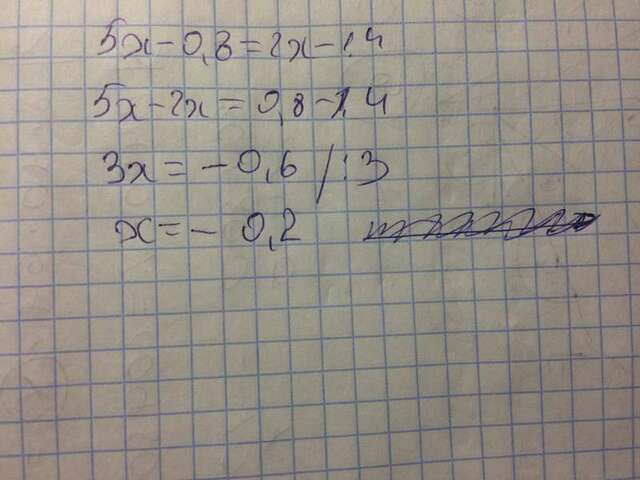 5x-0,8=2x-1.4
5x-2x=0,8-1,4
3x=-0,6 /:3
x=-0,2